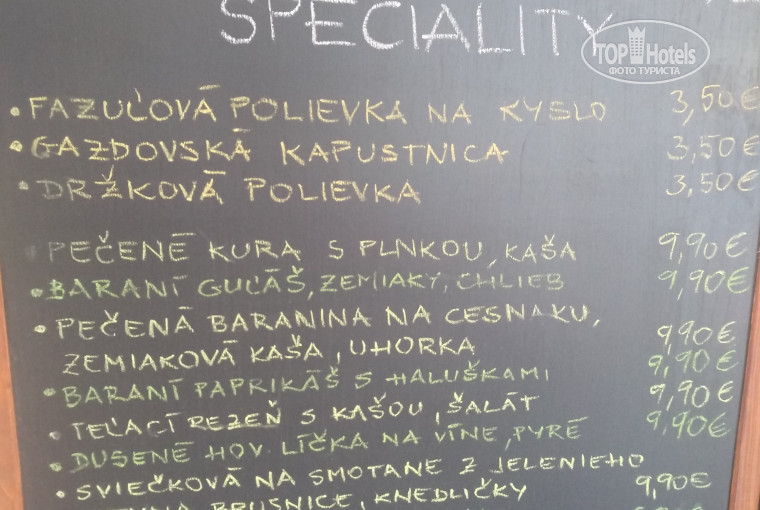 SPECIALITY
TOP Hotels
ФОТО ТУРИСТА
• FAZUĽOVÁ POLIEVKA NA KYSLO 3,50€
• GAZDOVSKÁ KAPUSTNICA 3,50€
• DRŽKOVÁ POLIEVKA 3,50€
PEČENÉ KURA S PLNKOU, KAŠA 9,90€
• BARANÍ GUĽÁŠ, ZEMIAKY, CHLIEB 9,90€
• PEČENÁ BARANINA NA CESNAKU,
ZEMIAKOVÁ KAŠA, UHORKA 9,90€
• BARANÍ PAPRIKÁŠ S HALUŠKAMI 9,90€
• TEĽACÍ REZEŇ S KAŠOU, ŠALÁT 9,90€
• DUSENÉ HOV. LÍČKA NA VÍNE, PYRÉ 9,90€
• SVIEČKOVÁ NA SMOTANE Z JELENIEHO
BRUSNICE, KNEDLIČKY 9,90€